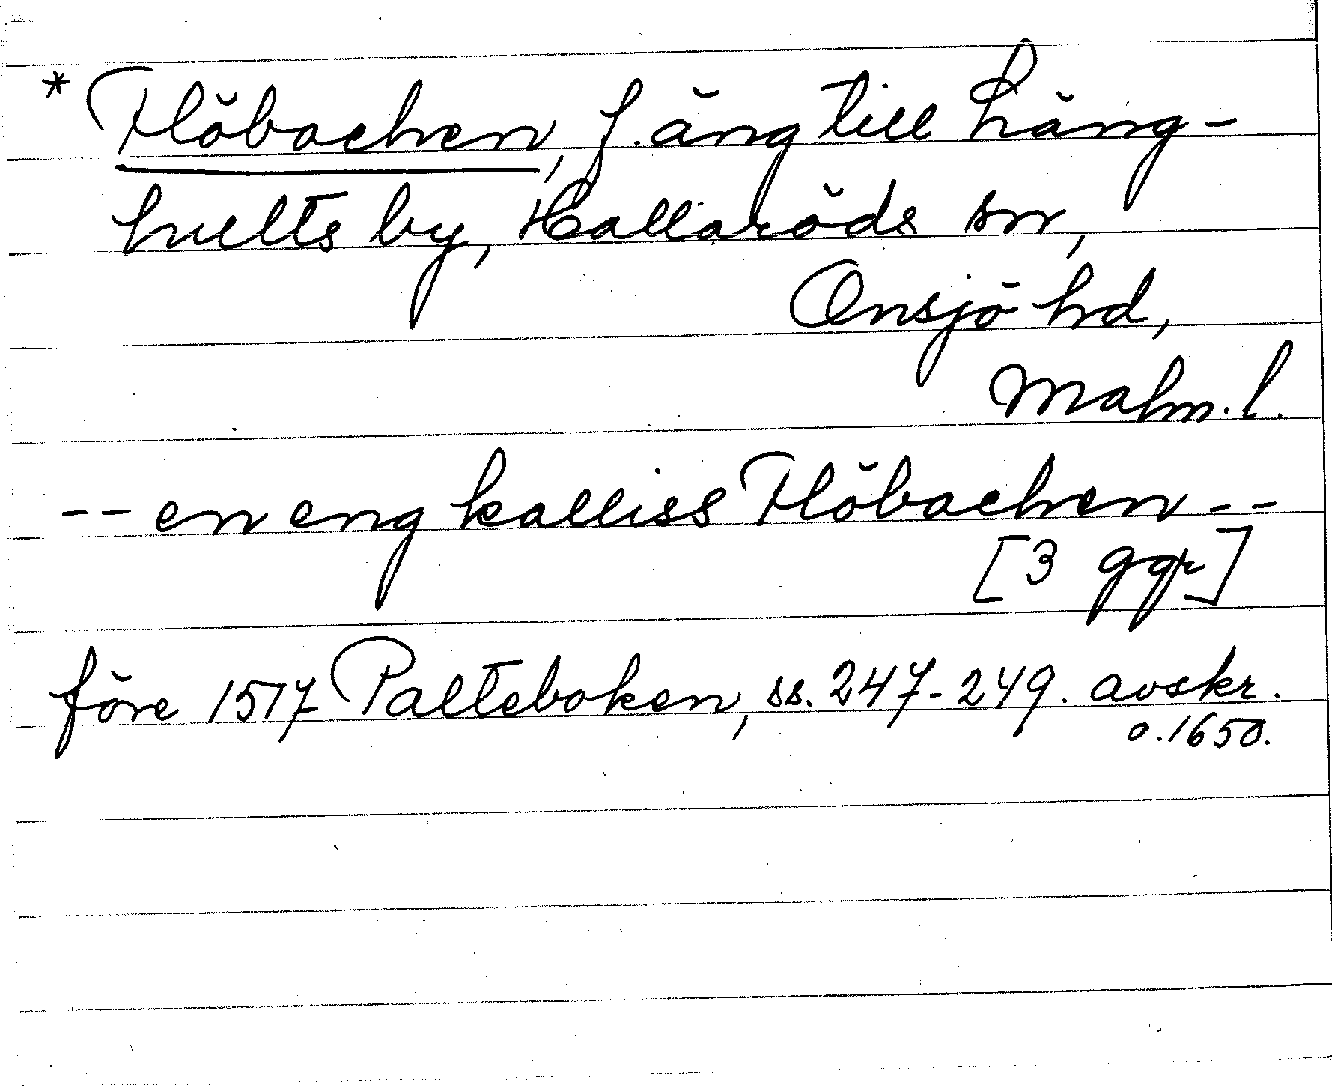 * Flöbachen, f. äng till Lång-
hults by, Hallaröds sn,
Onsjö hd,
Malm. l.
-- en eng kalliss Flöbachen --
[3 ggr]
före 1517 Palteboken, ss. 247-249. avskr.
o. 1650.